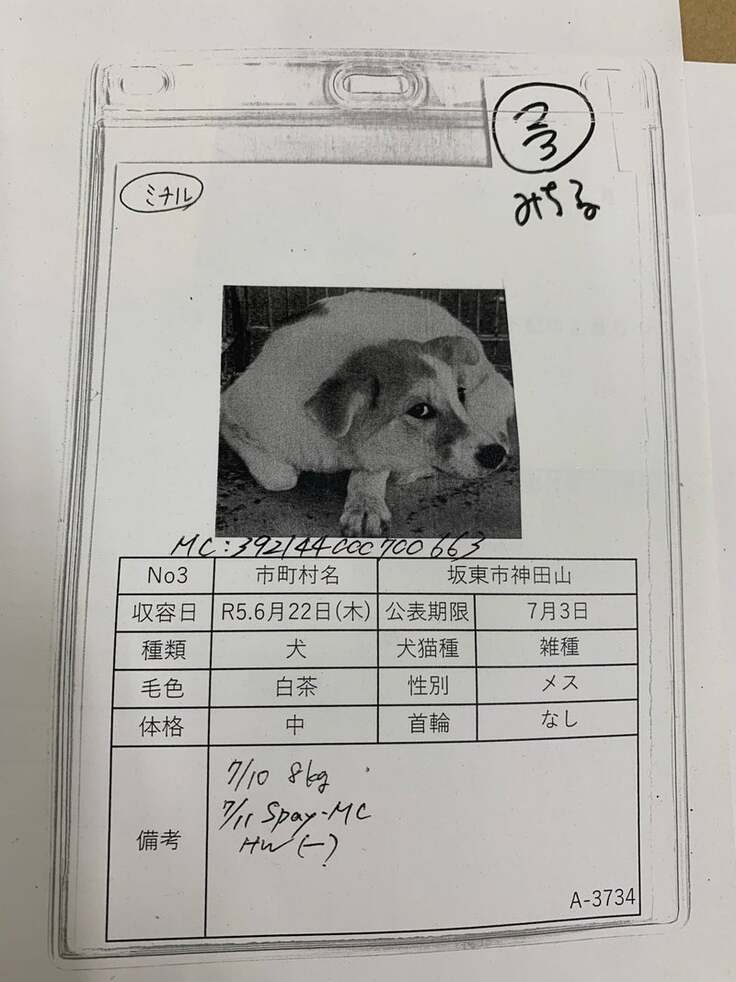 2/3
ミチル
みちる
MC:392144000700663
No3 市町村名 坂東市神田山
収容日 R5.6月22日(木) 公表期限 7月3日
種類 犬 犬猫種 雑種
毛色 白茶 性別 メス
体格 中 首輪 なし
備考
7/10 8kg
7/11 Spay-MC
HW(-)
A-3734